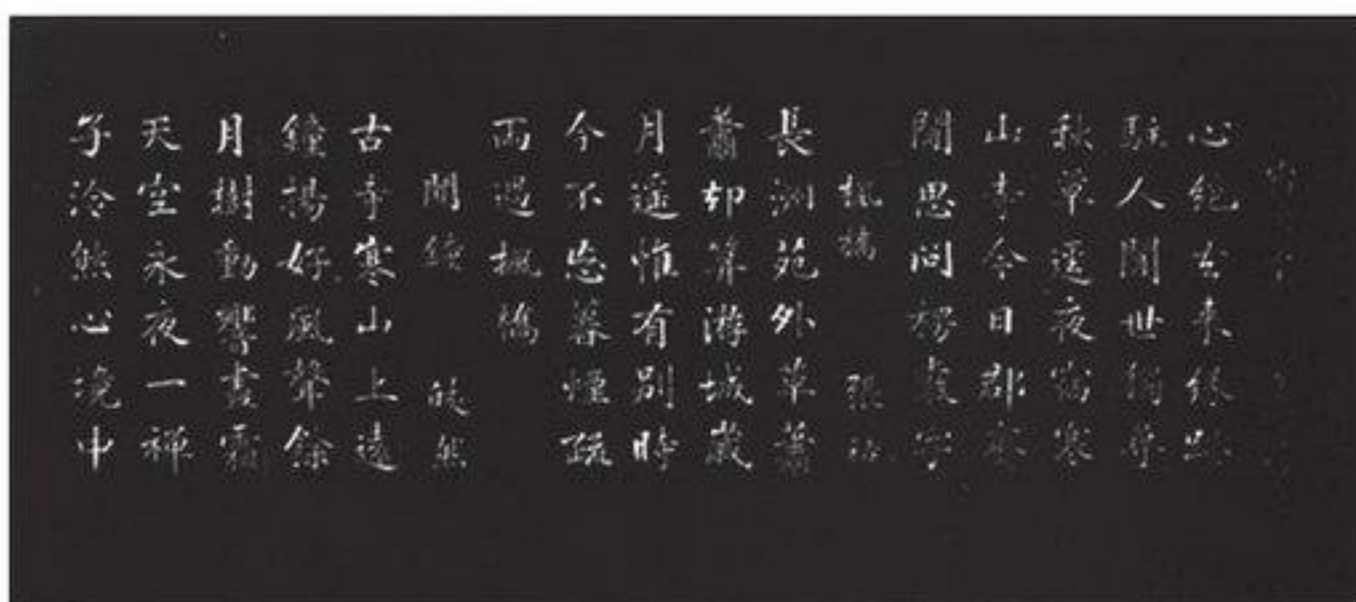 心絕去來緣跡
駐人間世獨尋
秋草逕夜宿寒
山寺今日郡齋
閒思問楞袈字
楓橋 張祜
長洲苑外草蕭
蕭却筭游城歲
月遥惟有別時
今不忘暮煙疏
雨過楓橋
聞鐘 皎然
古寺寒山上遠
鐘揚好風聲餘
月樹動響盡霜
天空永夜一禪
子泠然心境中